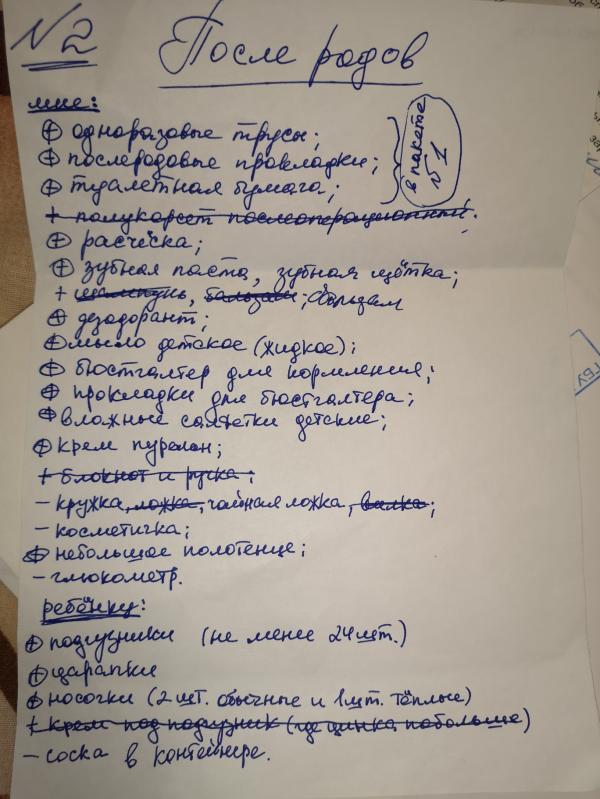 №2 После родов
мне:
⊕ одноразовые трусы;
⊕ послеродовые прокладки;
⊕ туалетная бумага;
в пакете №1
+ полукорсет послеоперационный;
⊕ расчёска;
⊕ зубная паста, зубная щётка;
+ шампунь, бальзам; бальзам
⊕ дезодорант;
⊕ мыло детское (жидкое);
⊕ бюстгалтер для кормления;
⊕ прокладки для бюстгалтера;
⊕ вложные салфетки детские;
⊕ крем пурелан;
+ блокнот и ручка;
- кружка, ложка, чайная ложка, вилка;
- косметичка;
⊕ небольшое полотенце;
- глюкометр.
ребёнку:
⊕ подгузники (не менее 24 шт.)
⊕ царапки
⊕ носочки (2 шт. обычные и 1 шт. тёплые)
+ крем под подгузник (где цинка побольше)
- соска в контейнере.
ГБУ